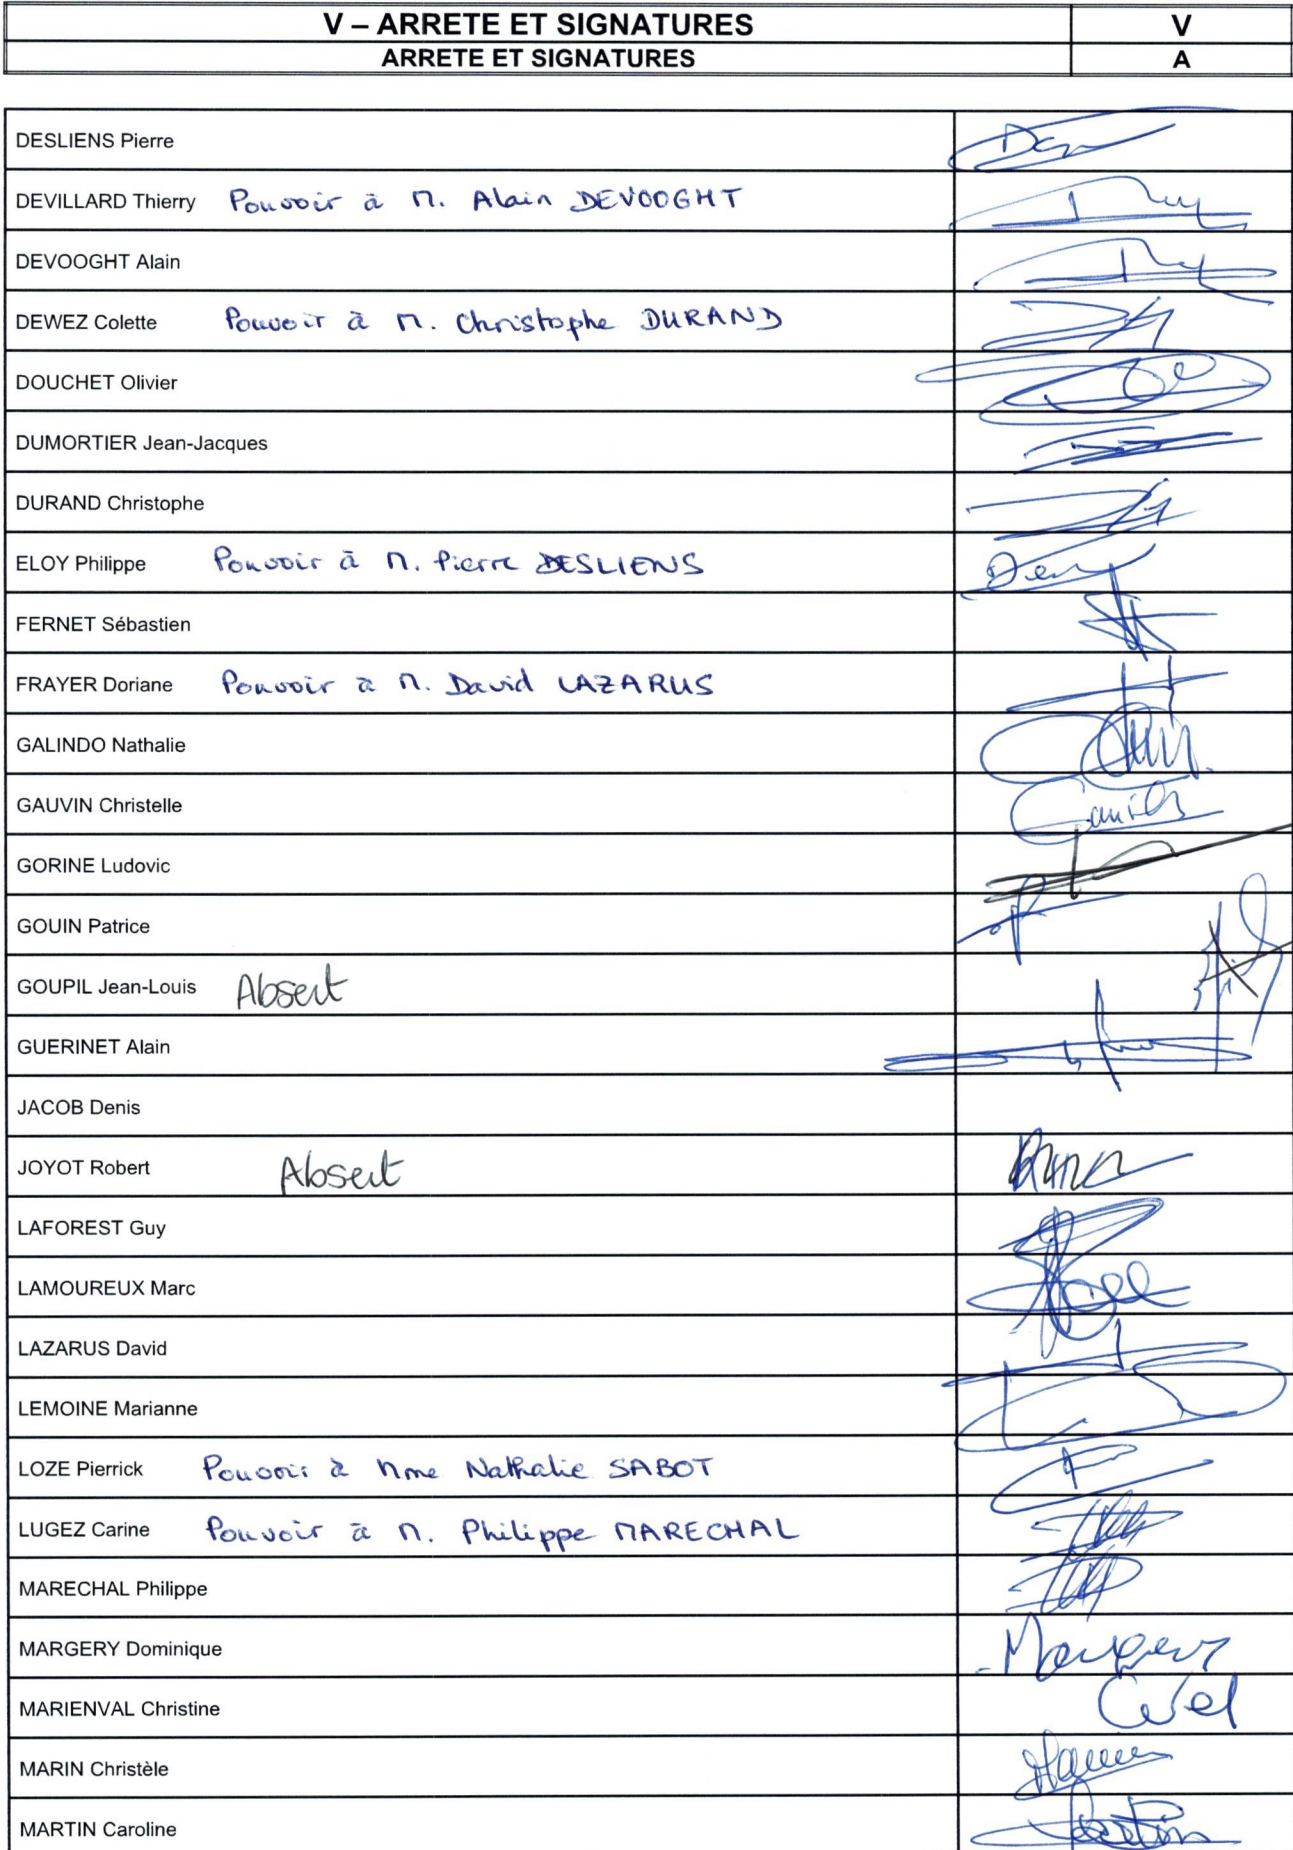 V – ARRETE ET SIGNATURES V
ARRETE ET SIGNATURES A
DESLIENS Pierre
DEVILLARD Thierry Pouvoir à M. Alain DEVOOGHT
DEVOOGHT Alain
DEWEZ Colette Pouvoir à M. Christophe DURAND
DOUCHET Olivier
DUMORTIER Jean-Jacques
DURAND Christophe
ELOY Philippe Pouvoir à M. Pierre DESLIENS
FERNET Sébastien
FRAYER Doriane Pouvoir à M. David LAZARUS
GALINDO Nathalie
GAUVIN Christelle
GORINE Ludovic
GOUIN Patrice
GOUPIL Jean-Louis Absent
GUERINET Alain
JACOB Denis
JOYOT Robert Absent
LAFOREST Guy
LAMOUREUX Marc
LAZARUS David
LEMOINE Marianne
LOZE Pierrick Pouvoir à Mme Nathalie SABOT
LUGEZ Carine Pouvoir à M. Philippe MARECHAL
MARECHAL Philippe
MARGERY Dominique
MARIENVAL Christine
MARIN Christèle
MARTIN Caroline